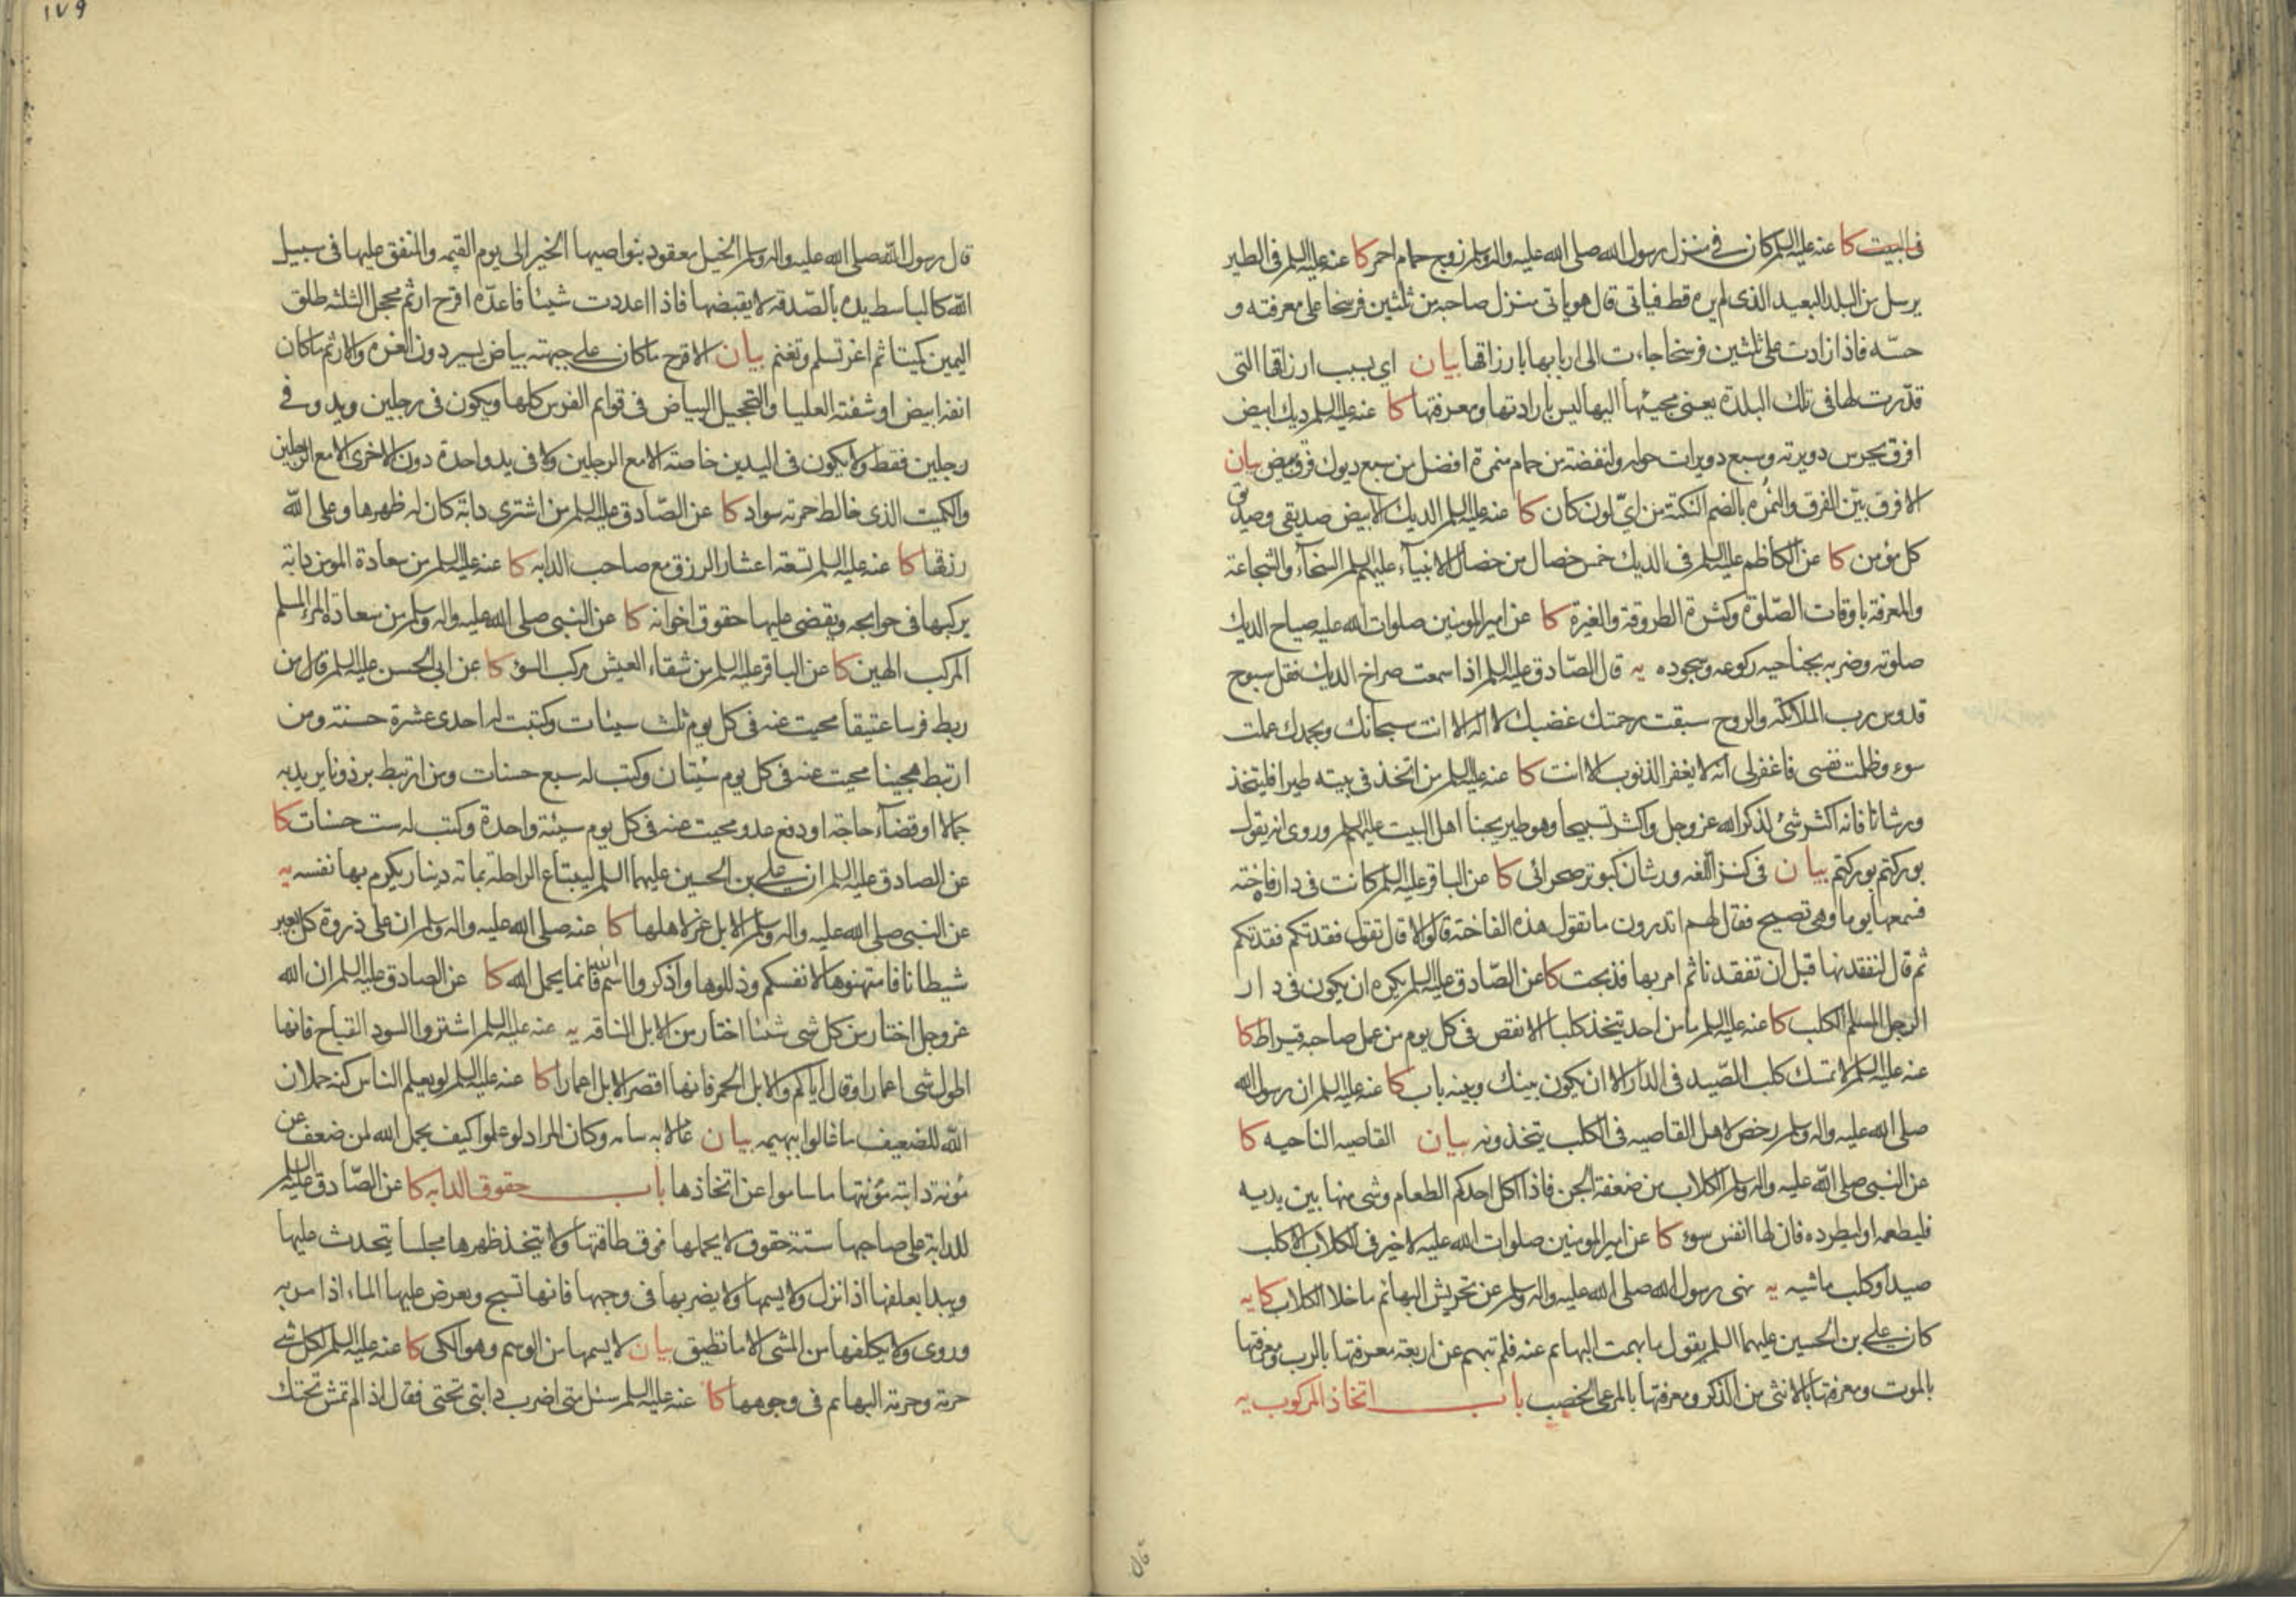 فى البيت كا عنه عليه السلم كان فى منزل رسول الله صلى الله عليه واله وسلم زوج حمام احمر كا عنه عليه السلم فى الطير
يرسل من البلد البعيد الذى لم يره قط فياتى قال هو ياتى منزل صاحبه من ثلثين فرسخا على معرفته و
حسّه فاذا زادت على ثلثين فرسخا جاءت الى اربابها بارزاقها بيان اى بسبب ارزاقها التى
قدّرت لها فى تلك البلدة يعنى مجيئها اليها ليس بارادتها ومعرفتها كا عنه عليه السلم ديك ابيض
افرق يحرس دويرته وسبع دويرات حوله ولنفضة من حمام منمرة افضل من سبع ديوك فرق بيض بيان
الافرق بيّن الفرق والنمره بالضم النكتة من اىّ لون كان كا عنه عليه السلم الديك الابيض صديقى وصديق
كل مؤمن كا عن الكاظم عليه السلم فى الديك خمس خصال من خصال الانبياء عليهم السلم السخاء والشجاعة
والمعرفة باوقات الصّلوة وكثرة الطروقة والغيرة كا عن امير المومنين صلوات الله عليه صياح الديك
صلوته وضربه بجناحيه ركوعه وسجوده يه قال الصّادق عليه السلم اذا سمعت صراخ الديك فقل سبوح
قدوس رب الملائكه والروح سبقت رحمتك غضبك لا اله الا انت سبحانك وبحمدك عملت
سوء وظلمت نفسى فاغفر لى انه لا يغفر الذنوب الا انت كا عنه عليه السلم من اتخذ فى بيته طيرا فليتخذ
ورشانا فانه اكثر شئ لذكر الله عز وجل واكثر تسبيحا وهو طير يحبنا اهل البيت عليهم السلم وروى انه يقول
بوركتم بوركتم بيان فى كنز اللغه ورشان كبوتر صحرائى كا عن الباقر عليه السلم كانت فى داره فاخته
فسمعها يوما وهى تصيح فقال لهم اتدرون ما تقول هذه الفاخته قالوا لا قال تقول فقدتكم فقدتكم
ثم قال لنفقدنها قبل ان تفقدنا ثم امر بها فذبحت كا عن الصّادق عليه السلم يكره ان يكون فى دار
الرجل المسلم الكلب كا عنه عليه السلم ما من احد يتخذ كلبا الا نقص فى كل يوم من عمل صاحبه قيراط كا
عنه عليه السلم لا تمسك كلب الصّيد فى الدار الا ان يكون بينك وبينه باب كا عنه عليه السلم ان رسول الله
صلى الله عليه واله وسلم رخص لاهل القاصيه فى الكلب يتخذونه بيان القاصيه الناحيه كا
عن النبى صلى الله عليه واله وسلم الكلاب من ضعفة الجن فاذا اكل احدكم الطعام وشى منها بين يديه
فليطعمه او ليطرده فان لها انفس سوء كا عن امير المومنين صلوات الله عليه لا خير فى الكلاب الا كلب
صيد او كلب ماشيه يه نهى رسول الله صلى الله عليه واله وسلم عن تحريش البهائم ما خلا الكلاب كا يه
كان على بن الحسين عليهما السلم يقول ما بهمت البهائم عنه فلم تبهم عن اربعة معرفتها بالرب ومعرفتها
بالموت ومعرفتها بالانثى من الذكر ومعرفتها بالمرعى الخصب باب اتخاذ المركوب يه
قال
١٧٩
قال رسول الله صلى الله عليه واله وسلم الخيل معقود بنواصيها الخير الى يوم القيمه والمنفق عليها فى سبيل
الله كالباسط يده بالصّدقه لا يقبضها فاذا اعددت شيئا فاعدّه اقرح ارثم محجل الثلثه طلق
اليمين كميتا ثم اغر تسلم وتغنم بيان الاقرح ما كان على جبهته بياض يسير دون الغره والارثم ما كان
انفه ابيض او شفته العليا والتحجيل البياض فى قوايم الفرس كلها ويكون فى رجلين ويد وفى
رجلين فقط ولا يكون فى اليدين خاصة الا مع الرجلين ولا فى يد واحدة دون الاخرى الا مع الرجلين
والكميت الذى خالط حمرته سواد كا عن الصّادق عليه السلم من اشترى دابة كان له ظهرها وعلى الله
رزقها كا عنه عليه السلم تسعة اعشار الرزق مع صاحب الدابه كا عنه عليه السلم من سعادة المومن دابة
يركبها فى حوايجه ويقضى عليها حقوق اخوانه كا عن النبى صلى الله عليه واله وسلم من سعادة المرء المسلم
المركب الهين كا عن الباقر عليه السلم من شقاء العيش مركب السوء كا عن ابى الحسن عليه السلم قال من
ربط فرسا عتيقا محيت عنه فى كل يوم ثلث سيئات وكتبت له احدى عشرة حسنة ومن
ارتبط هجينا محيت عنه فى كل يوم سيئتان وكتب له سبع حسنات ومن ارتبط برذونا يريد به
جمالا او قضاء حاجة او دفع عدو محيت عنه فى كل يوم سيئة واحدة وكتب له ست حسنات كا
عن الصادق عليه السلم ان على بن الحسين عليهما السلم ليبتاع الراحلة بمائه دينار يكرم بها نفسه يه
عن النبى صلى الله عليه واله وسلم الابل عز لاهلها كا عنه صلى الله عليه واله وسلم ان على ذروة كل بعير
شيطانا فامتهنوها لانفسكم وذللوها واذكروا اسم الله فانما يحمل الله كا عن الصادق عليه السلم ان الله
عز وجل اختار من كل شى شيئا اختار من الابل الناقه يه عنه عليه السلم اشتروا السود القباح فانها
اطول شى اعمارا وقال اياكم والابل الحمر فانها اقصر الابل اعمارا كا عنه عليه السلم لو يعلم الناس كنه حملان
الله للضعيف ما غالوا ببهيمه بيان غالا به سامه وكان المراد لو علموا كيف يحمل الله لمن ضعف عن
مؤنة دابته مؤنتها ما ساموا عن اتخاذها باب حقوق الدابه كا عن الصّادق عليه السلم
للدابة على صاحبها ستة حقوق لا يحملها فوق طاقتها ولا يتخذ ظهرها مجلسا يتحدث عليها
ويبدا بعلفها اذا نزل ولا يسمها ولا يضربها فى وجهها فانها تسبح ويعرض عليها الماء اذا مر به
وروى ولا يكلفها من المشى الا ما تطيق بيان لا يسمها من الوسم وهو الكى كا عنه عليه السلم لكل شى
حرمة وحرمة البهائم فى وجوهها كا عنه عليه السلم سئل متى اضرب دابتى تحتى فقال اذا لم تمش تحتك